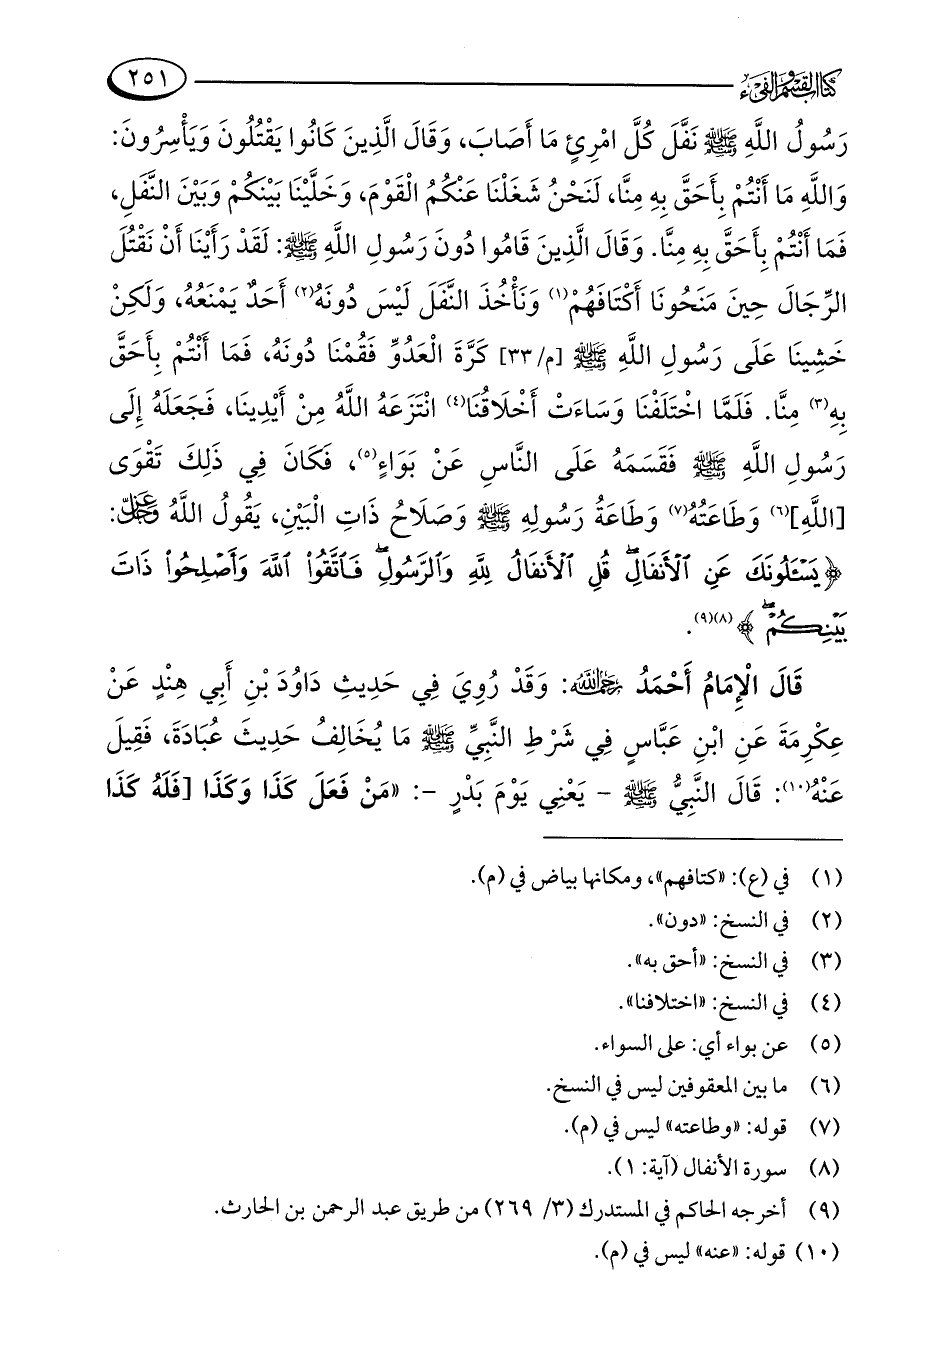 كتاب القسم والفيء
٢٥١
رَسُولُ اللَّهِ ﷺ نَفَّلَ كُلَّ امْرِئٍ مَا أَصَابَ، وَقَالَ الَّذِينَ كَانُوا يَقْتُلُونَ وَيَأْسِرُونَ:
وَاللَّهِ مَا أَنْتُمْ بِأَحَقَّ بِهِ مِنَّا، لَنَحْنُ شَغَلْنَا عَنْكُمُ الْقَوْمَ، وَخَلَّيْنَا بَيْنَكُمْ وَبَيْنَ النَّفَلِ،
فَمَا أَنْتُمْ بِأَحَقَّ بِهِ مِنَّا. وَقَالَ الَّذِينَ قَامُوا دُونَ رَسُولِ اللَّهِ ﷺ: لَقَدْ رَأَيْنَا أَنْ نَقْتُلَ
الرِّجَالَ حِينَ مَنَحُونَا أَكْتَافَهُمْ(١) وَنَأْخُذَ النَّفَلَ لَيْسَ دُونَهُ(٢) أَحَدٌ يَمْنَعُهُ، وَلَكِنْ
خَشِينَا عَلَى رَسُولِ اللَّهِ ﷺ [م/٣٣] كَرَّةَ الْعَدُوِّ فَقُمْنَا دُونَهُ، فَمَا أَنْتُمْ بِأَحَقَّ
بِهِ(٣) مِنَّا. فَلَمَّا اخْتَلَفْنَا وَسَاءَتْ أَخْلَاقُنَا(٤) انْتَزَعَهُ اللَّهُ مِنْ أَيْدِينَا، فَجَعَلَهُ إِلَى
رَسُولِ اللَّهِ ﷺ فَقَسَمَهُ عَلَى النَّاسِ عَنْ بَوَاءٍ(٥)، فَكَانَ فِي ذَلِكَ تَقْوَى
[اللَّهِ](٦) وَطَاعَتُهُ(٧) وَطَاعَةُ رَسُولِهِ ﷺ وَصَلَاحُ ذَاتِ الْبَيْنِ، يَقُولُ اللَّهُ عَزَّ وَجَلَّ:
﴿يَسْـَٔلُونَكَ عَنِ ٱلْأَنفَالِۖ قُلِ ٱلْأَنفَالُ لِلَّهِ وَٱلرَّسُولِۖ فَٱتَّقُوا۟ ٱللَّهَ وَأَصْلِحُوا۟ ذَاتَ
بَيْنِكُمْۖ﴾(٨)(٩).
قَالَ الْإِمَامُ أَحْمَدُ رَحِمَهُ اللَّهُ: وَقَدْ رُوِيَ فِي حَدِيثِ دَاوُدَ بْنِ أَبِي هِنْدٍ عَنْ
عِكْرِمَةَ عَنِ ابْنِ عَبَّاسٍ فِي شَرْطِ النَّبِيِّ ﷺ مَا يُخَالِفُ حَدِيثَ عُبَادَةَ، فَقِيلَ
عَنْهُ(١٠): قَالَ النَّبِيُّ ﷺ - يَعْنِي يَوْمَ بَدْرٍ -: «مَنْ فَعَلَ كَذَا وَكَذَا [فَلَهُ كَذَا
(١) في (ع): «كتافهم»، ومكانها بياض في (م).
(٢) في النسخ: «دون».
(٣) في النسخ: «أحق به».
(٤) في النسخ: «اختلافنا».
(٥) عن بواء أي: على السواء.
(٦) ما بين المعقوفين ليس في النسخ.
(٧) قوله: «وطاعته» ليس في (م).
(٨) سورة الأنفال (آية: ١).
(٩) أخرجه الحاكم في المستدرك (٣/ ٢٦٩) من طريق عبد الرحمن بن الحارث.
(١٠) قوله: «عنه» ليس في (م).